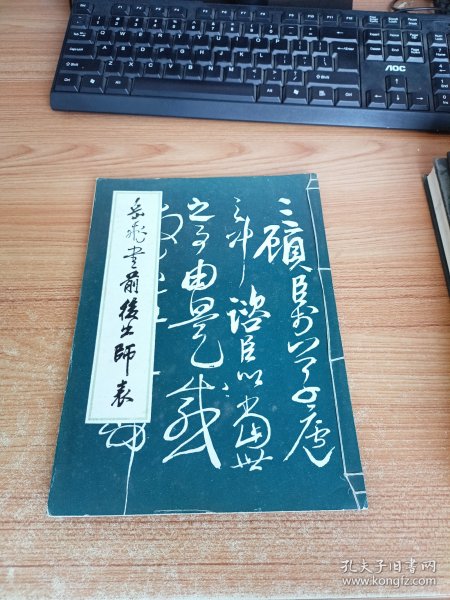 岳飛書前後出師表
三顧臣於草廬
之中諮臣以當世
之事由是感
AOC
孔夫子旧书网
www.kongfz.com